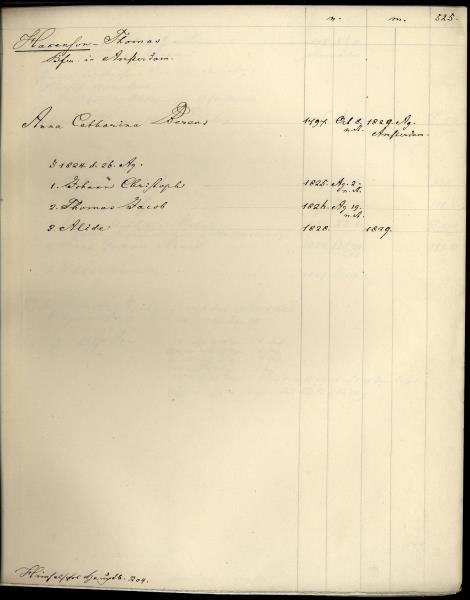 n. m. 525.
Haxenson - Thomas
Kfm. in Amsterdam.
Anna Catharina Berens 1797. Oct 8. n.St. 1829. Ag.
Amsterdam.
1824. d. 26. Ag.
1. Johann Christoph 1825. Ag. 2. n.St.
2. Thomas Jacob 1826. Ag 19. n.St.
3 Alide 1828. 1829.
204.